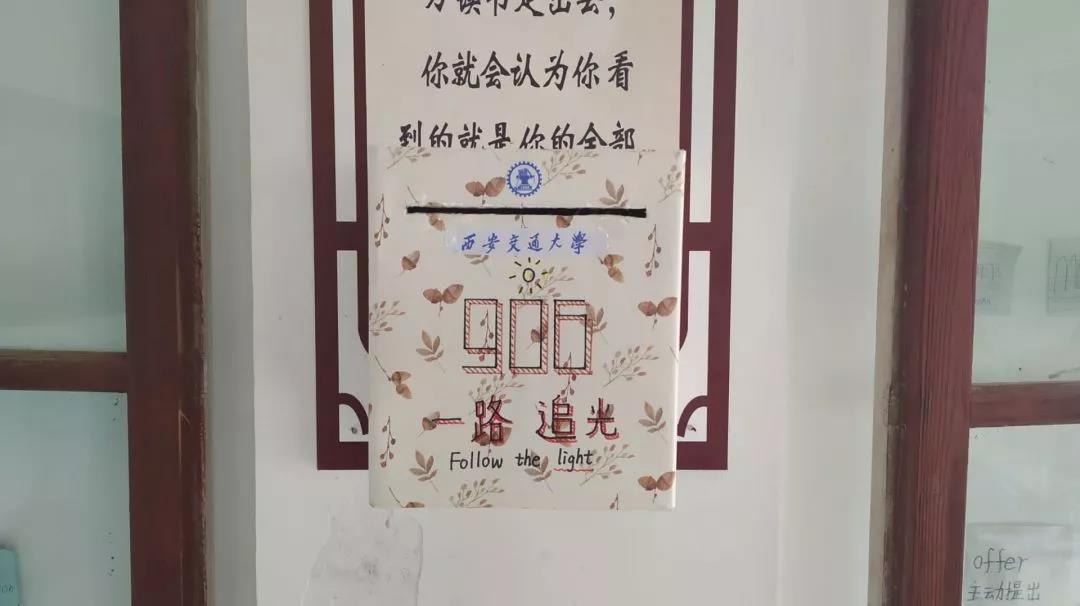 你就会认为你看
到的就是你的全部
西安交通大學
906
一路 追光
Follow the light
offer
主动提出